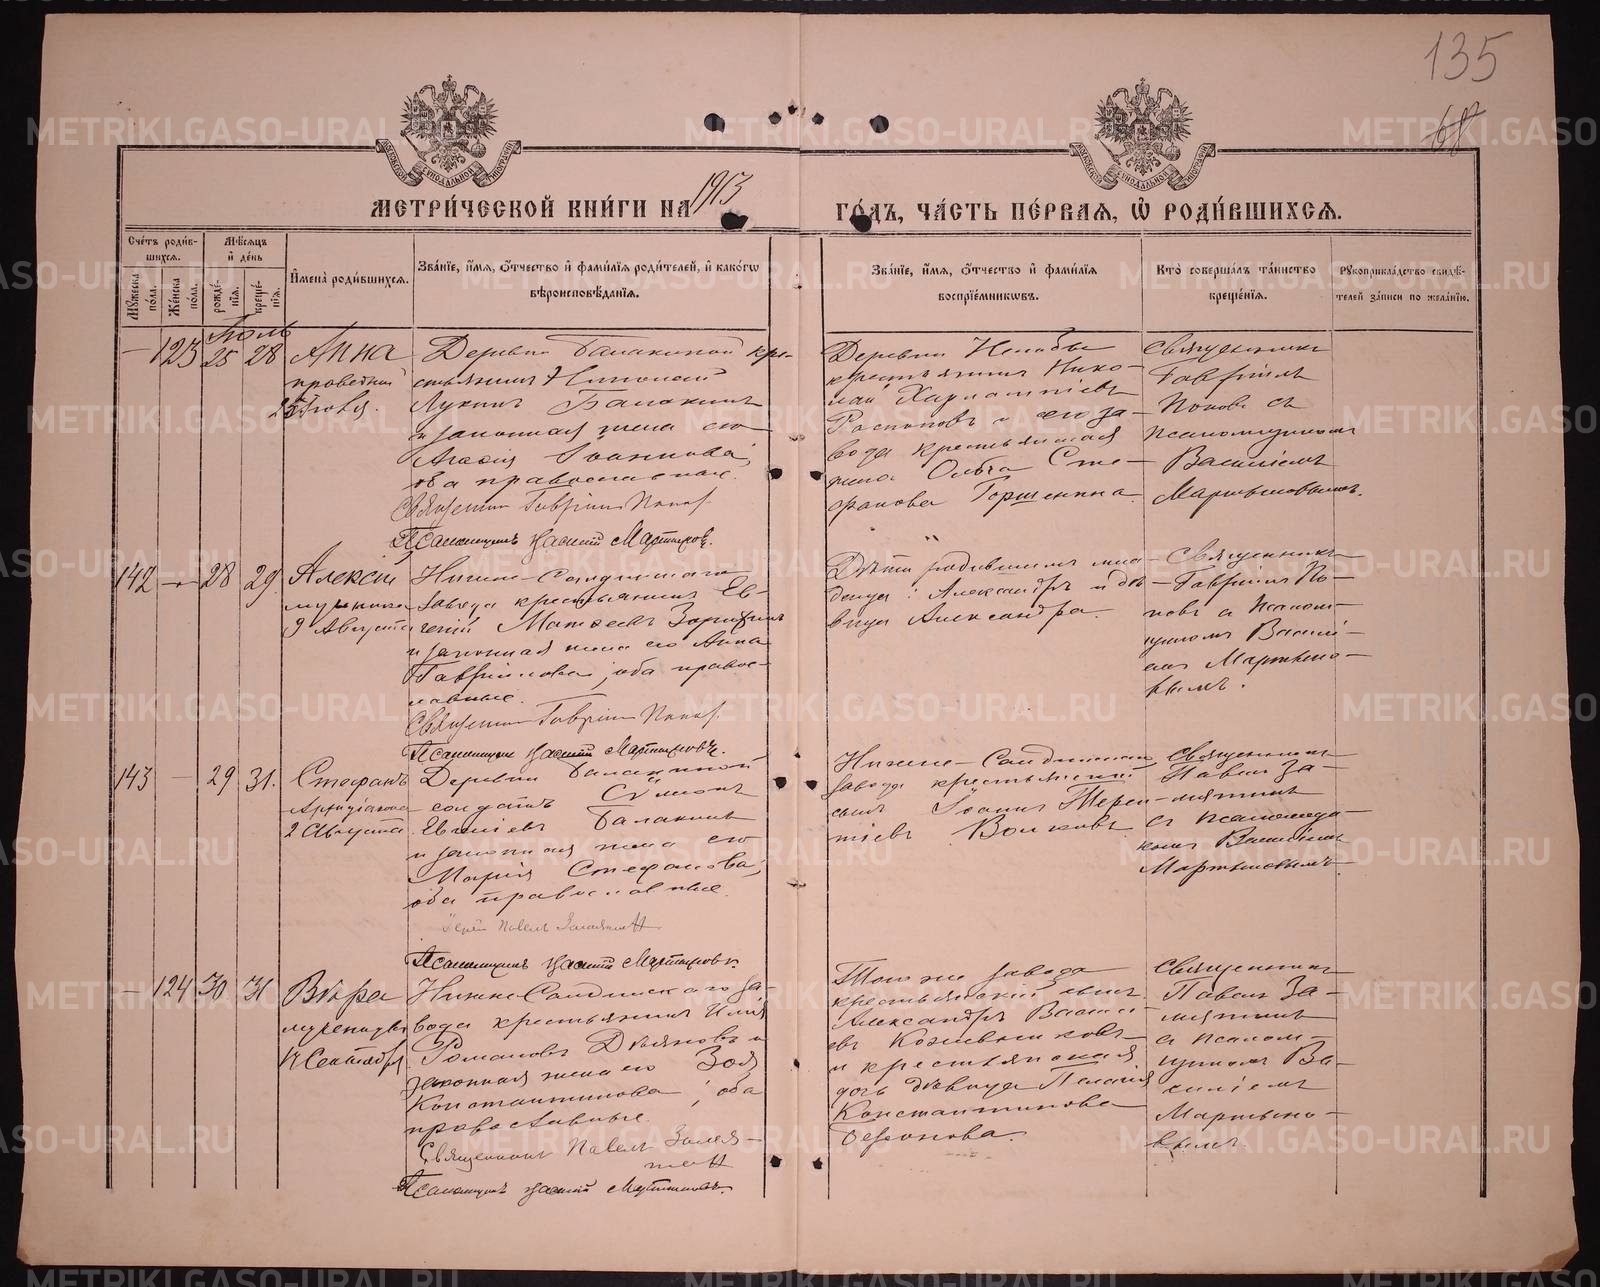 135
68
МЕТРИ́ЧЕСКОЙ КНИ́ГИ НА 1913 ГО́ДЪ, ЧА́СТЬ ПЕ́РВАЯ, Ѡ РОДИ́ВШИХСЯ.
Сче́тъ роди́в-
шихся.
Му́жеска по́ла.
Же́нска по́ла.
Мѣ́сяцъ
и҆ де́нь
рожде́нїя.
креще́нїя.
И҆мена̀ роди́вшихся.
Зва́нїе, и҆́мя, ѻ҆́тчество и҆ фами́лїя роди́телей, и҆ како́гѡ
вѣроисповѣ́данїя.
Зва́нїе, и҆́мя, ѻ҆́тчество и҆ фами́лїя
воспрїе́мникѡвъ.
Кто̀ соверша́лъ та́инство
креще́нїя.
Рꙋкоприкла́дство свидѣ́-
телей за́писи по жела́нїю.
Іюль
— 123 25 28 Анна
25 Іюля.
Деревни Балакиной кре-
стьянинъ Николай
Лукинъ Балакинъ
и законная жена его
Агаѳія Іоаннова,
оба православные.
Священникъ Гавріилъ Поповъ
Псаломщикъ Василій Мартыновъ.
Деревни Нелобы
крестьянинъ Нико-
лай Харлампіевъ
Распоповъ и его за-
вода крестьянская
жена Ольга Сте-
фанова Горшенина.
Священникъ
Гавріилъ
Поповъ съ
псаломщикомъ
Василіемъ
Мартыновымъ.
142 — 28 29 Алексій
мученика
9 Августа
Нижне-Салдинскаго
завода крестьянинъ Ев-
геній Матѳеевъ
и законная жена его Анна
Гавріилова, оба правос-
лавные.
Священникъ Гавріилъ Поповъ
Псаломщикъ Василій Мартыновъ.
Дѣти родившагося мла-
денца: Александръ и дѣ-
вица Александра.
Священникъ
Гавріилъ По-
повъ съ псалом-
щикомъ Васи-
емъ Мартыно-
вымъ.
143 — 29 31. Стефанъ
Архидіакона
2 Августа
Деревни Балакиной
солдатъ Сѵмеонъ
Евгеніевъ Балакинъ
и законная жена его
Марія Стефанова,
оба православные.
Іерей Павелъ Замятинъ
Псаломщикъ Василій Мартыновъ.
Нижне-Салдинскаго
завода крестьянскій
сынъ Іоаннъ Терен-
тіевъ Волковъ.
Священникъ
Павелъ За-
мятинъ
съ псаломщи-
комъ Василіемъ
Мартыновымъ.
— 124 30 31 Вѣра
мученицы
17 Сентября
Нижне-Салдинскаго за-
вода крестьянинъ Илія
Романовъ Дѣяновъ и
законная жена его Зоя
Константинова, оба
православные.
Священникъ Павелъ Замя-
тинъ
Псаломщикъ Василій Мартыновъ.
Того же завода
крестьянскій сынъ
Александръ Васили-
евъ Кожевниковъ
и крестьянская
дочь дѣвица Пелагія
Константинова
Священникъ
Павелъ За-
мятинъ
съ псалом-
щикомъ Ва-
силіемъ
Мартыно-
вымъ.
METRIKI.GASO-URAL.RU